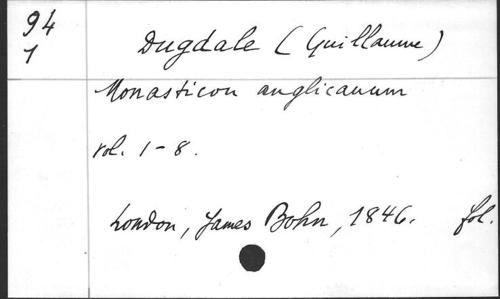 94
1
Dugdale (Guillaume)
Monasticon anglicanum
vol. 1-8.
London, James Bohn, 1846. fol.